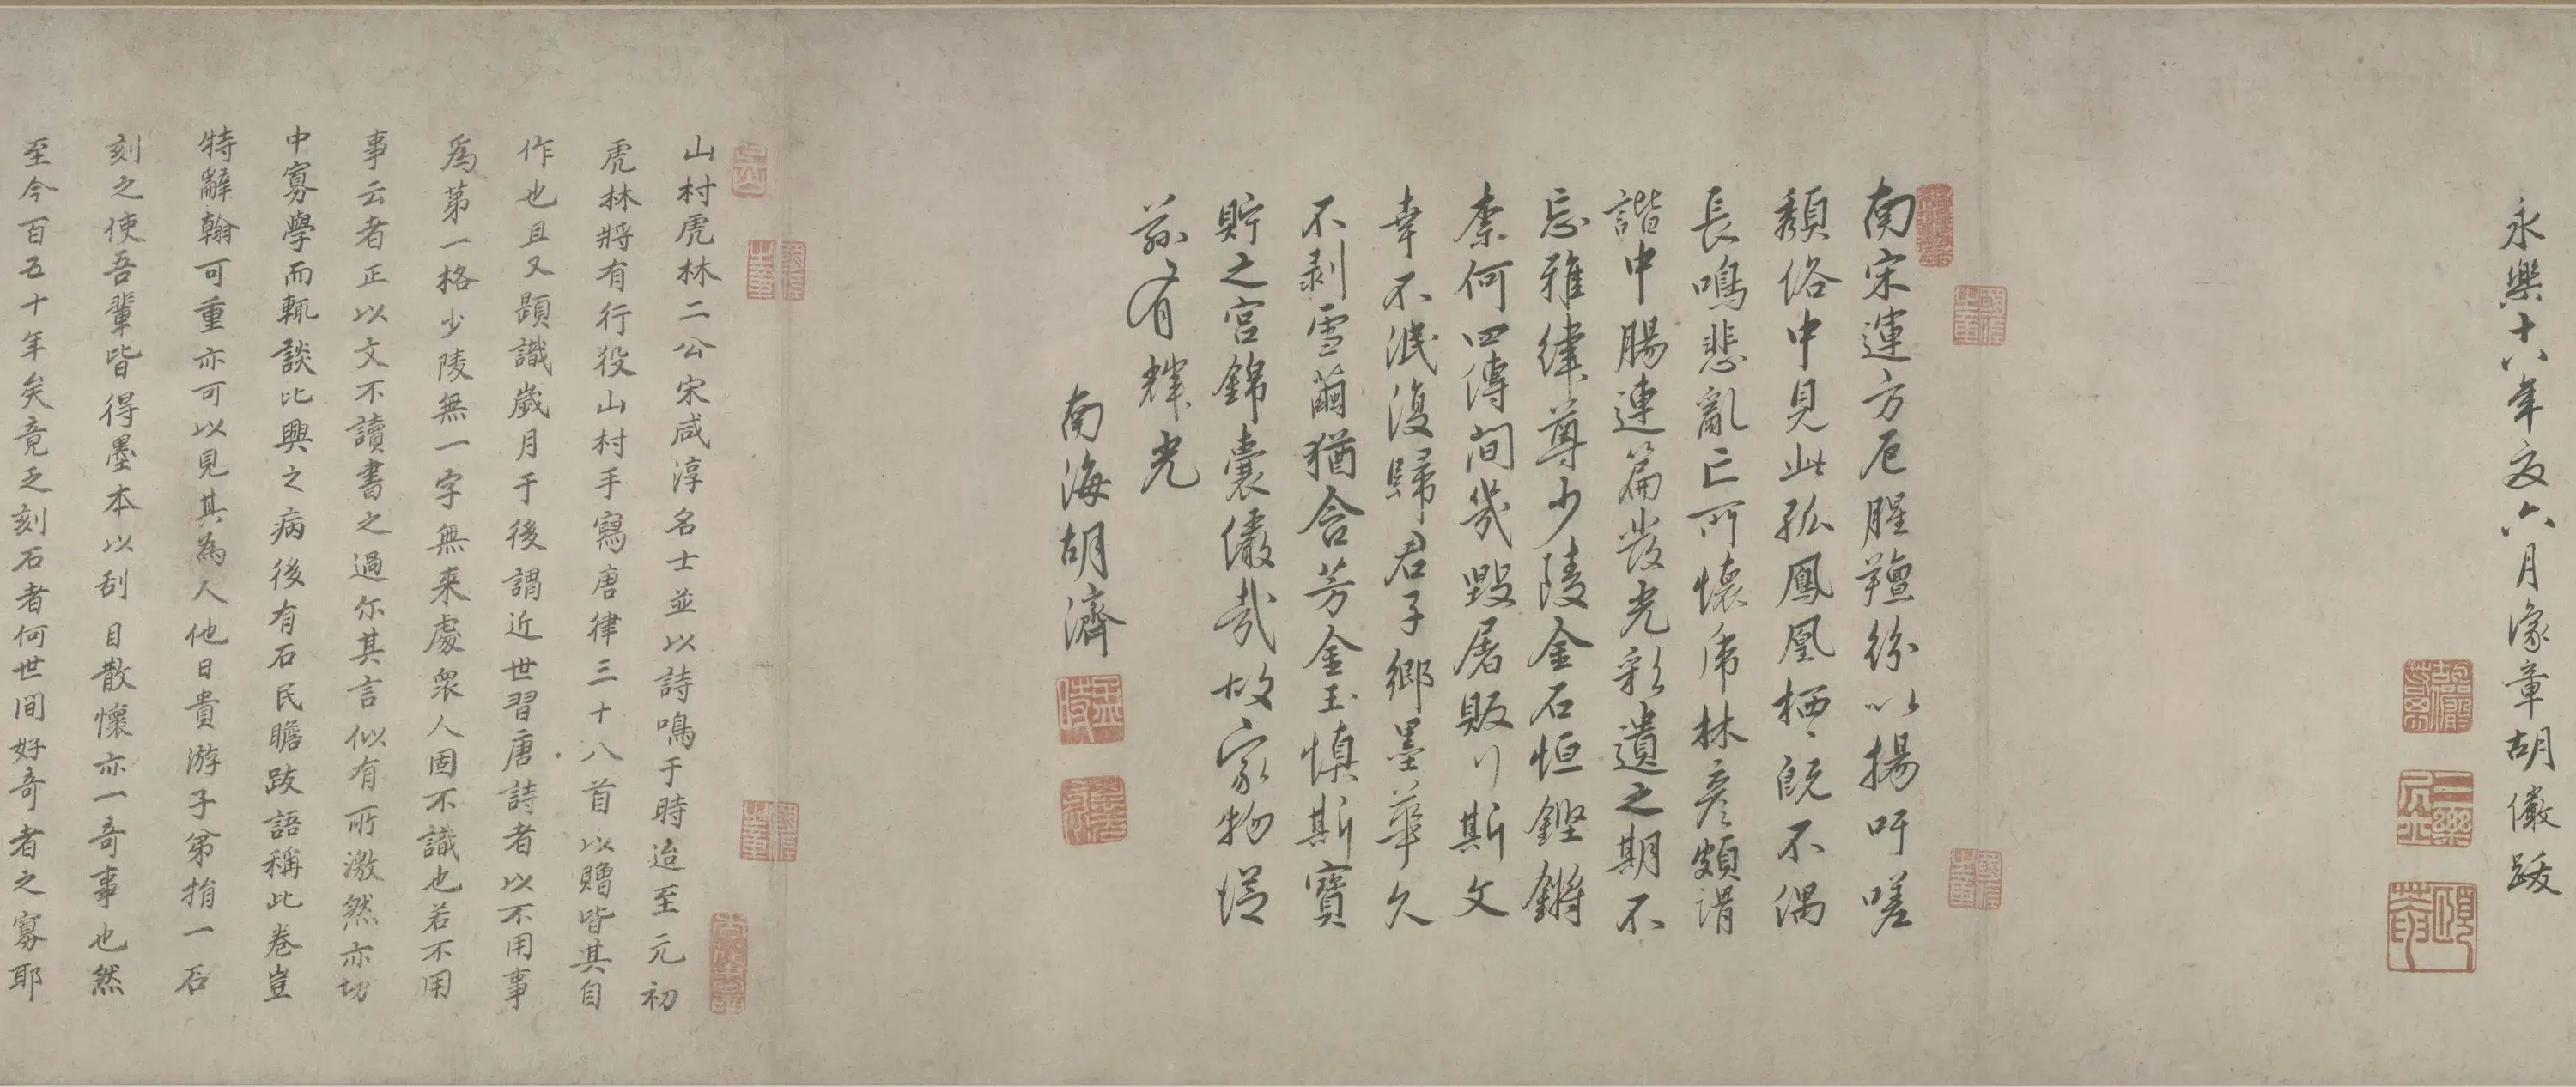 永樂十六年夏六月豫章胡儼跋
南宋運方厄腥羶紛以揚吁嗟
頹俗中見此孤鳳凰栖栖既不偶
長鳴悲亂亡所懷虎林彥頗謂
諧中腸連篇發光彩遺之期不
忘雅律尊少陵金石恒鏗鏘
柰何四傳間幾毀屠販行斯文
幸不泯復歸君子鄉墨華久
不剥雪繭猶含芳金玉慎斯寶
貯之宮錦囊儼哉故家物
孫有輝光
南海胡濟
山村虎林二公宋咸淳名士並以詩鳴于時迨至元初
虎林將有行役山村手寫唐律三十八首以贈皆其自
作也且又題識歲月于後謂近世習唐詩者以不用事
為第一格少陵無一字無来處衆人固不識也若不用
事云者正以文不讀書之過尓其言似有所激然亦切
中寡學而輒談比興之病後有石民瞻跋語稱此卷豈
特辭翰可重亦可以見其為人他日貴游子弟捐一石
刻之使吾輩皆得墨本以刮目散懷亦一奇事也然
至今百五十年矣竟乏刻石者何世間好奇者之寡耶